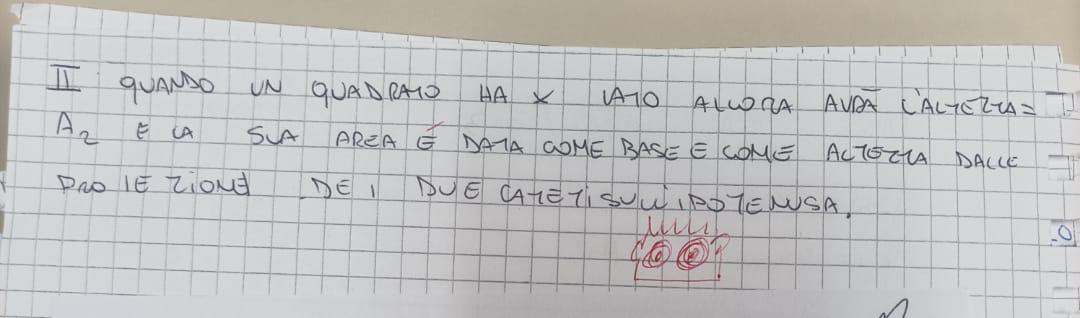 II QUANDO UN QUADRATO HA X LATO ALLORA AVRÀ L'ALTEZZA=
A2 E LA SUA AREA É DATA COME BASE E COME ALTEZZA DALLE
PROIEZIONI DEI DUE CATETI SULL'IPOTENUSA.